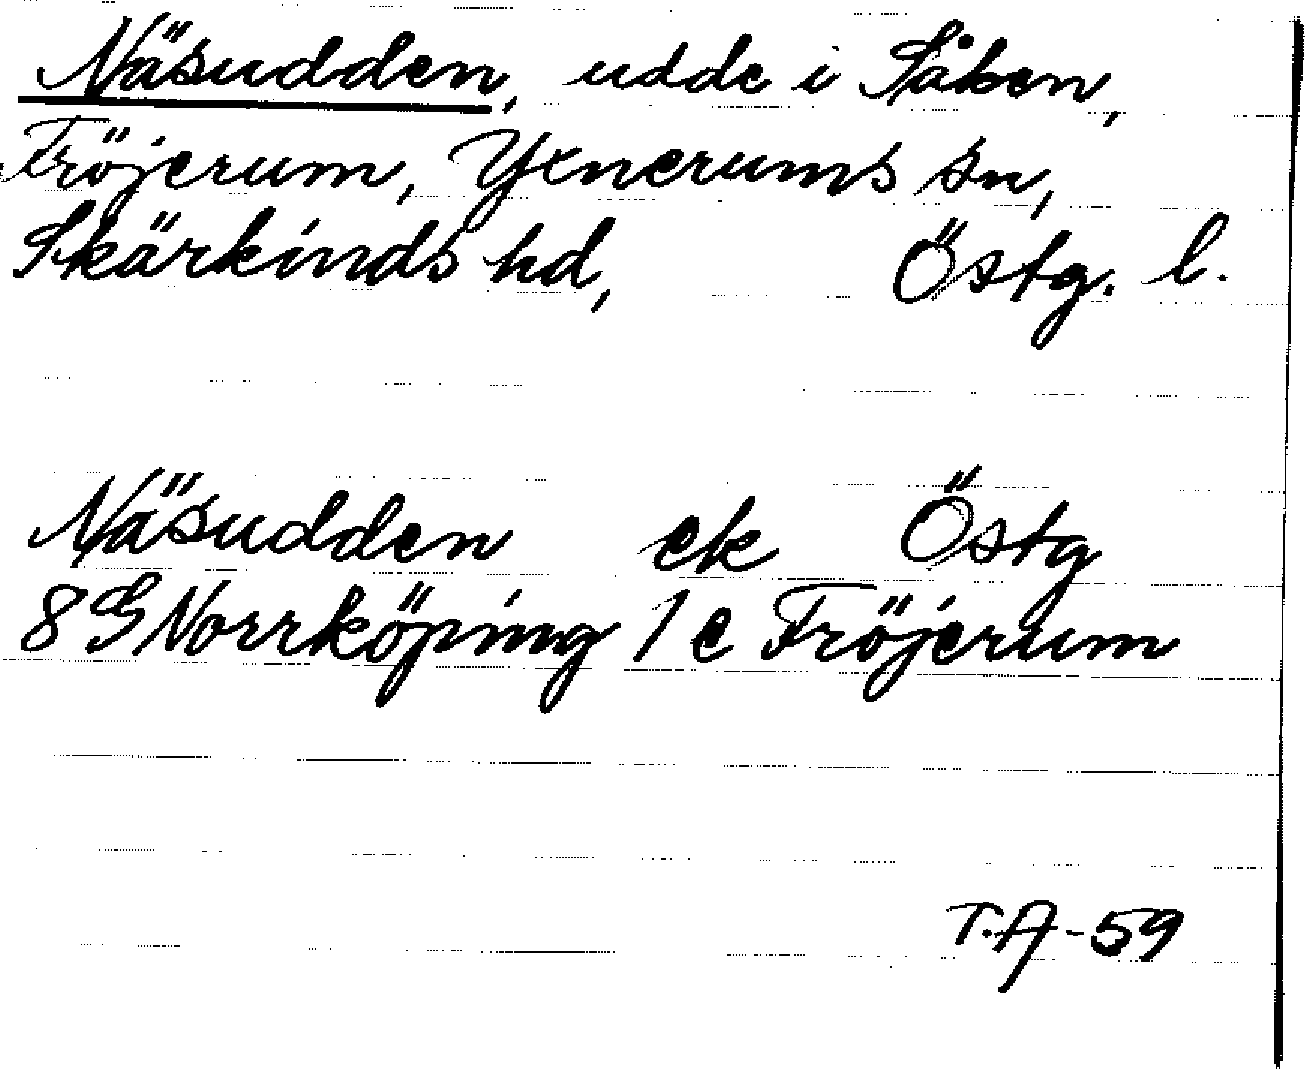 Näsudden, udde i Såken,
Fröjerum, Yxnerums sn,
Skärkinds hd, Östg. l.
Näsudden ek Östg
8 G Norrköping 1 e Fröjerum
T.A-59